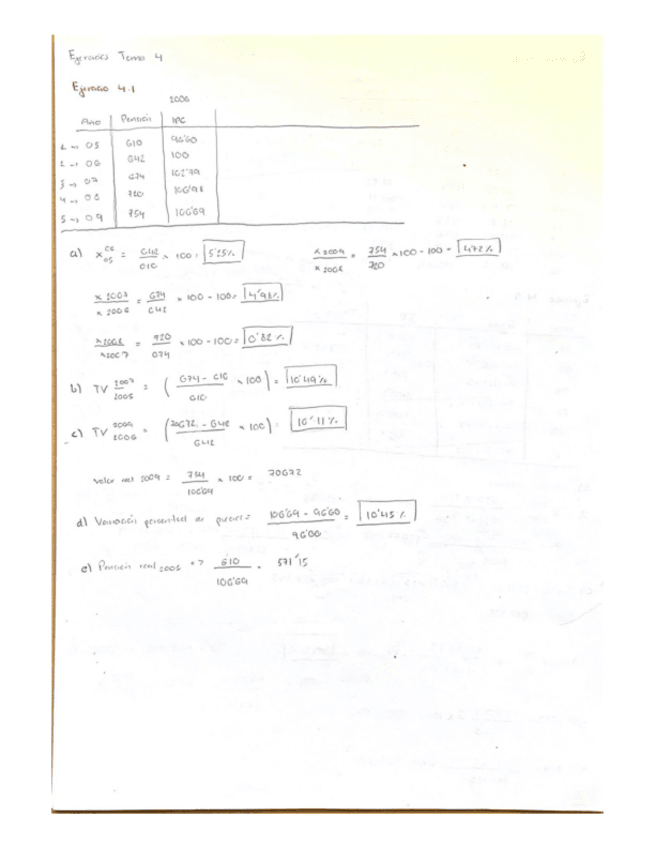 Ejercicios Tema 4
Ejercicio 4.1
2006
Año Pensión IPC
1 → 05 610 96'60
2 → 06 642 100
3 → 07 674 102'79
4 → 08 720 106'98
5 → 09 754 106'69
a) X 06 05 = 642 / 610 × 100 = 5'25%
x 2009 / x 2008 = 754 / 720 × 100 - 100 = 4'72%
x 2007 / x 2006 = 674 / 642 × 100 - 100 = 4'98%
x 2008 / x 2007 = 720 / 674 × 100 - 100 = 6'82%
b) TV 2007 2005 = ( 674 - 610 / 610 × 100 ) = 10'49%
c) TV 2009 2006 = ( 706'72 - 642 / 642 × 100 ) = 10'11%
Valor real 2009 = 754 / 106'69 × 100 = 706'72
d) Variación porcentual de precios = 106'69 - 96'60 / 96'60 = 10'45%
e) Pensión real 2005 => 610 / 106'69 = 571'15